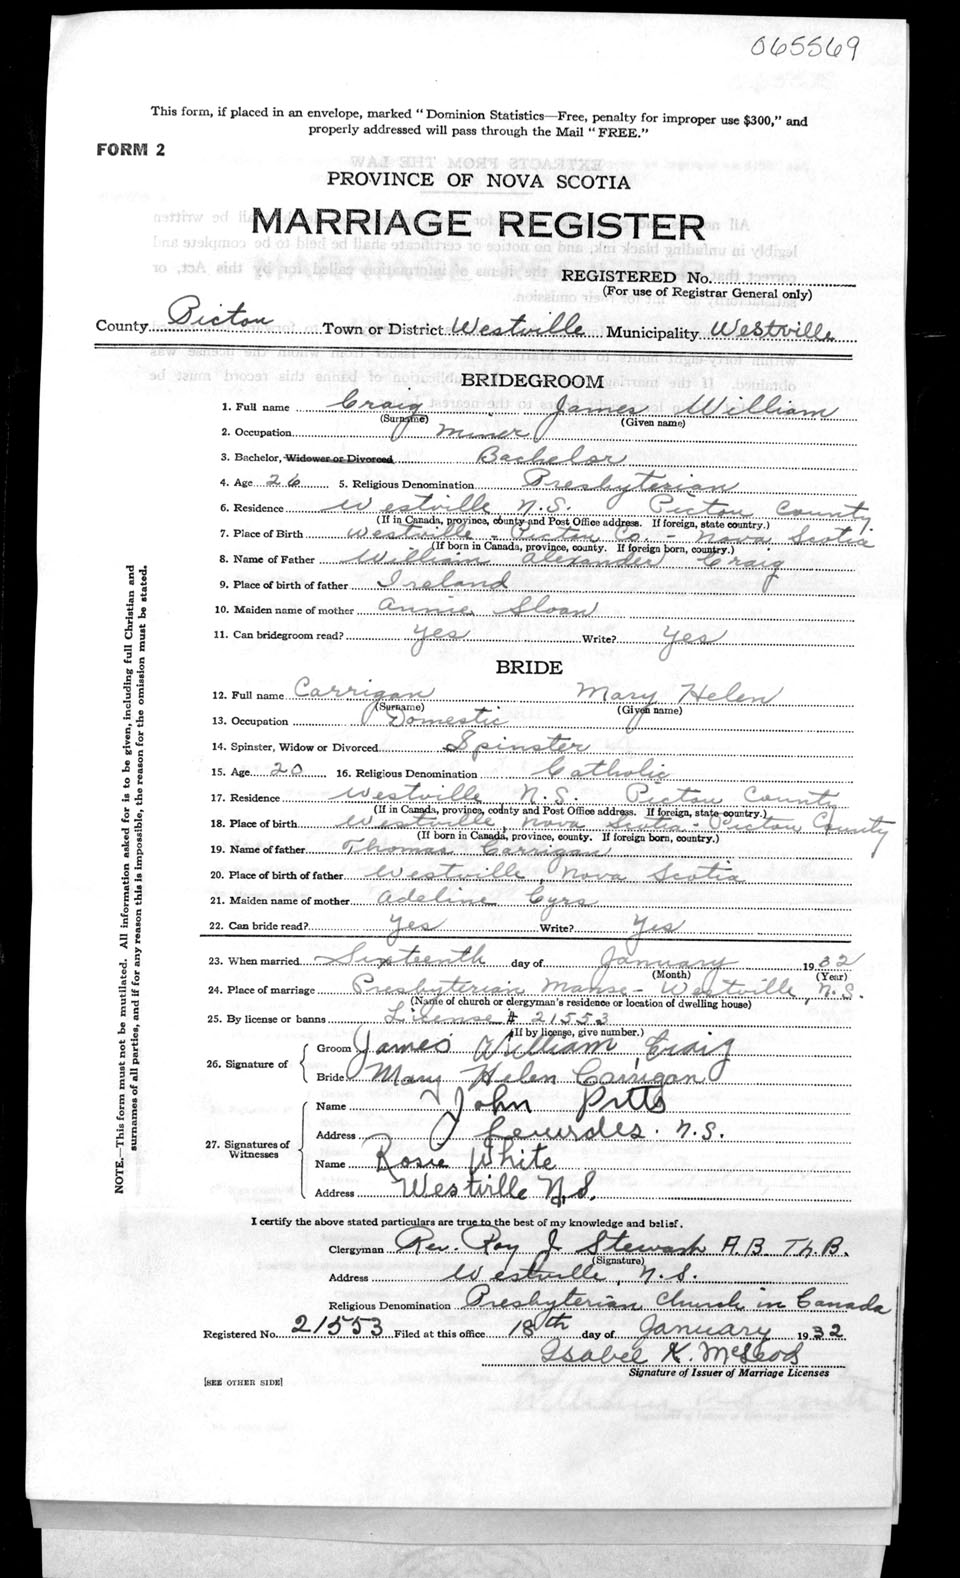 065569
This form, if placed in an envelope, marked "Dominion Statistics—Free, penalty for improper use $300," and
properly addressed will pass through the Mail "FREE."
FORM 2
PROVINCE OF NOVA SCOTIA
MARRIAGE REGISTER
REGISTERED No.
(For use of Registrar General only)
County Pictou Town or District Westville Municipality Westville
BRIDEGROOM
1. Full name Craig James William
(Surname) (Given name)
2. Occupation Miner
3. Bachelor, Widower or Divorced Bachelor
4. Age 26 5. Religious Denomination Presbyterian
6. Residence Westville N.S. Pictou County
(If in Canada, province, county and Post Office address. If foreign, state country.)
7. Place of Birth Westville - Pictou Co. - Nova Scotia
(If born in Canada, province, county. If foreign born, country.)
8. Name of Father William Alexander Craig
9. Place of birth of father Ireland
10. Maiden name of mother Annie Sloan
11. Can bridegroom read? Yes Write? Yes
BRIDE
12. Full name Carrigan Mary Helen
(Surname) (Given name)
13. Occupation Domestic
14. Spinster, Widow or Divorced Spinster
15. Age 20 16. Religious Denomination Catholic
17. Residence Westville N.S. Pictou County
(If in Canada, province, county and Post Office address. If foreign, state country.)
18. Place of birth Westville, Nova Scotia - Pictou County
(If born in Canada, province, county. If foreign born, country.)
19. Name of father Thomas Carrigan
20. Place of birth of father Westville, Nova Scotia
21. Maiden name of mother Adeline Cyrs
22. Can bride read? Yes Write? Yes
23. When married Sixteenth day of January 1932
(Month) (Year)
24. Place of marriage Presbyterian Manse - Westville, N.S.
(Name of church or clergyman's residence or location of dwelling house)
25. By license or banns License # 21553
(If by license, give number.)
26. Signature of
Groom James William Craig
Bride Mary Helen Carrigan
27. Signatures of Witnesses
Name John Pitts
Address Lourdes. N.S.
Name Rosie White
Address Westville N.S.
NOTE.—This form must not be mutilated. All information asked for is to be given, including full Christian and
surnames of all parties, and if for any reason this is impossible, the reason for the omission must be stated.
I certify the above stated particulars are true to the best of my knowledge and belief.
Clergyman Rev. Roy J. Stewart A.B. Th.B.
(Signature)
Address Westville, N.S.
Religious Denomination Presbyterian Church in Canada
Registered No. 21553 Filed at this office 18th day of January 1932
Isabel K. McLeod
Signature of Issuer of Marriage Licenses
[SEE OTHER SIDE]